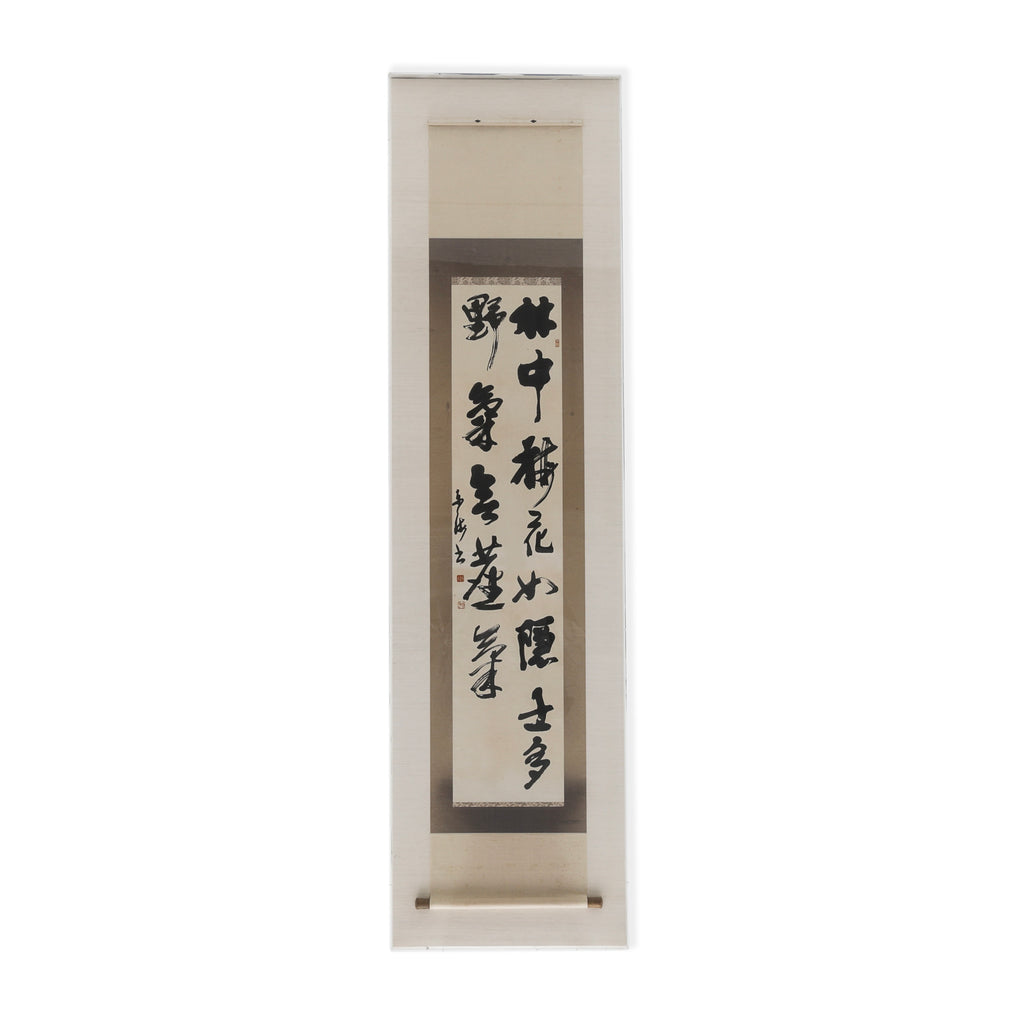 林中梅花如隠士多
野氣無塵氣